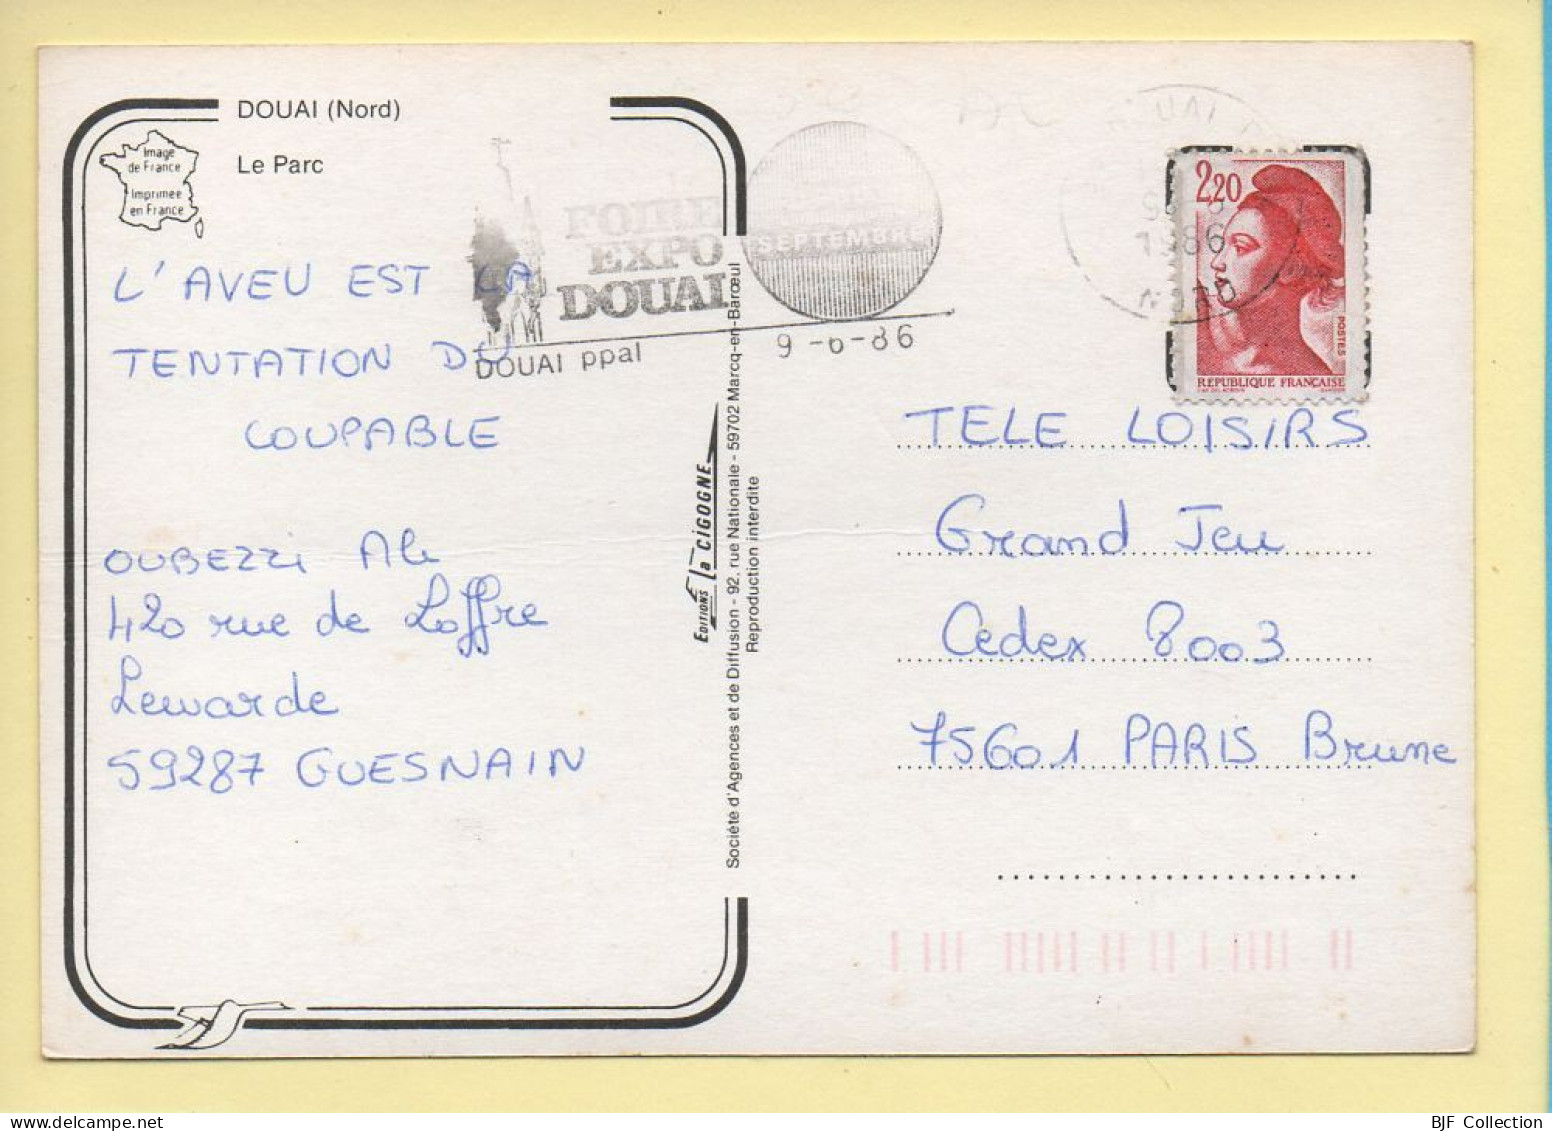 DOUAI (Nord)
Le Parc
Image
de France
Imprimée
en France
L'AVEU EST LA
TENTATION DU
COUPABLE
OUBEZZI Ali
420 rue de Loffre
Lewarde
59287 GUESNAIN
FOIRE
EXPO
DOUAI
SEPTEMBRE
DOUAI ppal
9-6-86
Editions la CIGOGNE
Société d'Agences et de Diffusion - 92, rue Nationale - 59702 Marcq-en-Barœul
Reproduction interdite
DOUAI
1986
NORD
2,20
POSTES
REPUBLIQUE FRANÇAISE
TELE LOISIRS
Grand Jeu
Cedex 8003
75601 PARIS Brune
BJF Collection